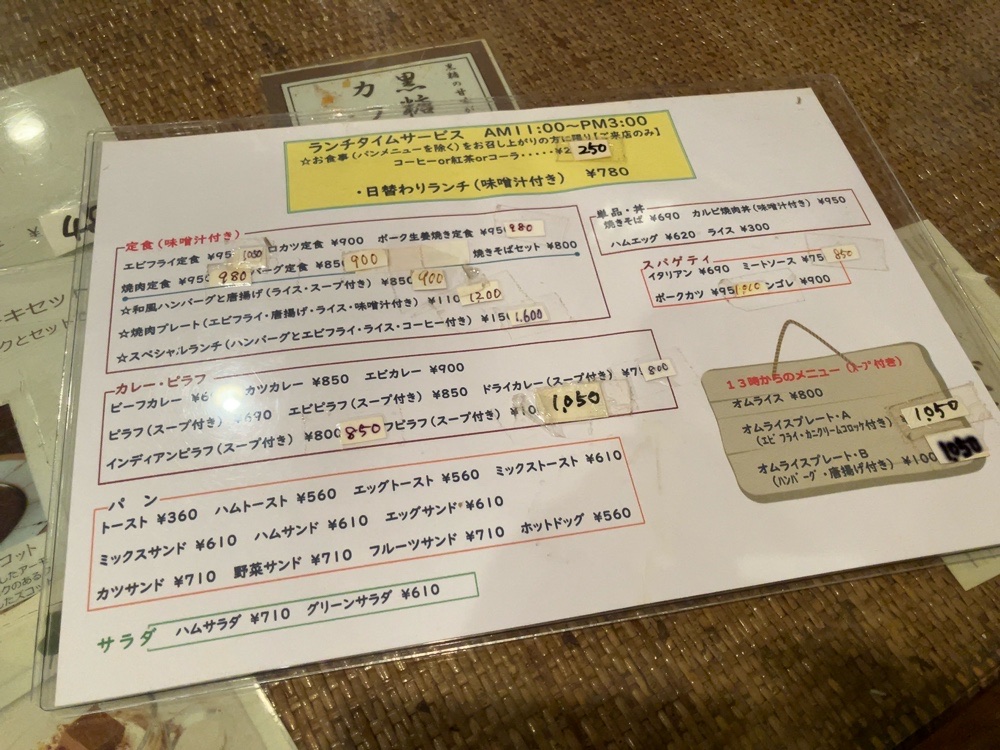 黒糖の甘
黒糖
カ
ランチタイムサービス AM11:00～PM3:00
☆お食事(パンメニューを除く)をお召し上がりの方に限り[ご来店のみ]
コーヒーor紅茶orコーラ・・・・・¥2 250
・日替わりランチ(味噌汁付き) ¥780
定食(味噌汁付き)
エビフライ定食 ¥95 1,050 ロカツ定食 ¥900 ポーク生姜焼き定食 ¥95 980
焼肉定食 ¥950 980 バーグ定食 ¥850 900 焼きそばセット ¥800
☆和風ハンバーグと唐揚げ(ライス・スープ付き) ¥850 900
☆焼肉プレート(エビフライ・唐揚げ・ライス・味噌汁付き) ¥110 1200
☆スペシャルランチ(ハンバーグとエビフライ・ライス・コーヒー付き) ¥15 1,600
単品・丼
焼きそば ¥690 カルビ焼肉丼(味噌汁付き) ¥950
ハムエッグ ¥620 ライス ¥300
スパゲティ
イタリアン ¥690 ミートソース ¥75 850
ポークカツ ¥95 ンゴレ ¥900
カレー・ピラフ
ビーフカレー ¥6 カツカレー ¥850 エビカレー ¥900
ピラフ(スープ付き) ¥690 エビピラフ(スープ付き) ¥850 ドライカレー(スープ付き) ¥7 800
インディアンピラフ(スープ付き) ¥800 850 フピラフ(スープ付き) ¥10 1,050
13時からのメニュー(ｽｰﾌﾟ付き)
オムライス ¥800
オムライスプレート・A 1,050
(エビフライ・カニクリームコロッケ付き)
オムライスプレート・B ¥100 1,050
(ﾊﾝﾊﾞｰｸﾞ・唐揚げ付き)
パン
トースト ¥360 ハムトースト ¥560 エッグトースト ¥560 ミックストースト ¥610
ミックスサンド ¥610 ハムサンド ¥610 エッグサンド ¥610
カツサンド ¥710 野菜サンド ¥710 フルーツサンド ¥710 ホットドッグ ¥560
サラダ
ハムサラダ ¥710 グリーンサラダ ¥610
¥ 45
キセッ
クとセット
コット
したアーモ
クのある
したスコット